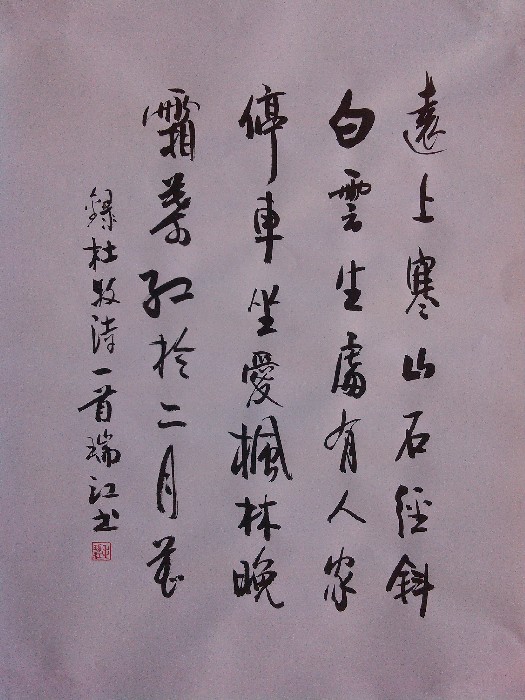 遠上寒山石径斜
白雲生處有人家
停車坐愛楓林晚
霜葉紅於二月花
録杜牧詩一首瑞江书